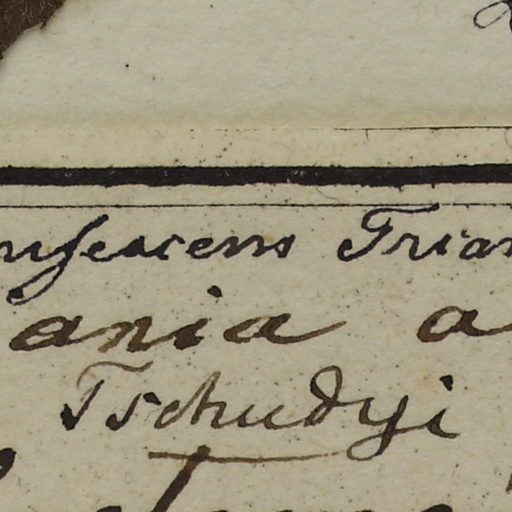 rufescens Trian
ania a
Tschudyi